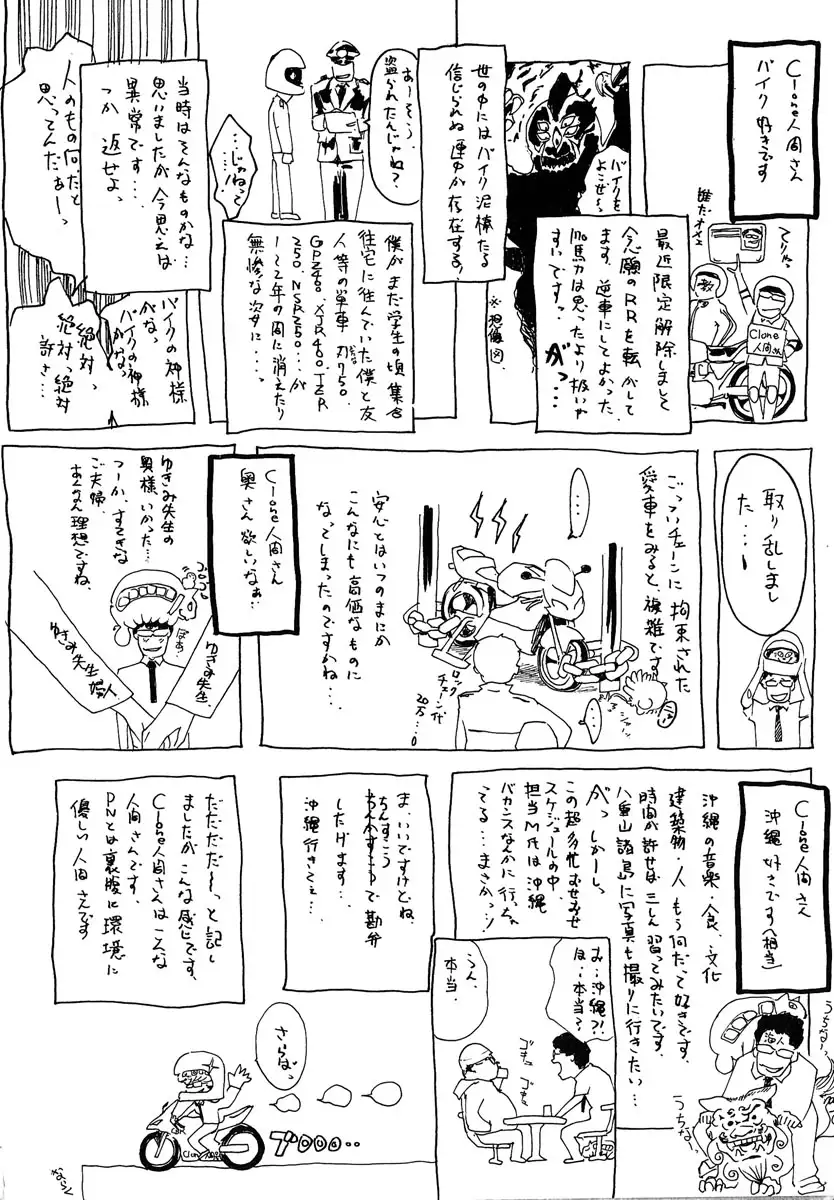 Clone人間さん
バイク好きです
てりゃっ
Clone
人間さん
最近限定解除しまして
念願のRRを転がして
ます。逆車にしてよかった。
馬力は思ったより扱いや
すいですっ。
がっ
バイクを
よこせ〜っ
※想像図
世の中にはバイク泥棒たる
信じられぬ連中が存在する!
あーそう、
盗られたんじゃね?
…じゃねって
…。
僕がまだ学生の頃集合
住宅に住んでいた僕と友
人等の単車 刀750、
GPZ400、XJR400、TZR
250、NSR250…が
1〜2年の間に消えたり
無惨な姿に…っ
当時はそんなものかな…
思いましたが今思えば
異常です…
つか 返せよっ
人のもの何だと
思ってんだぁーっ
バイクの神様
がなっ
バイクの神様
がなっ
絶対っ
絶対っ絶対
許さ…
取り乱しまし
た…!
ごっついチェーンに拘束された
愛車をみると、複雑です
…。
安心とはいつのまにか
こんなにも高価なものに
なってしまったのですかね…
ロック
チェーン代
20万…。
Clone人間さん
奥さん欲しいなぁ…
ゆきみ先生の
奥様、いかった…
つーか、すてきな
ご夫婦。
あんなん理想ですね、
ぽぁ…
ゆきみ先生、
ゆきみ先生婦人
Clone人間さん
沖縄好きです(担当)
沖縄の音楽・食、文化
建築物・人 もう何だって好きです。
時間が許せば三しん習ってみたいです。
八重山諸島に写真も撮りに行きたい…
がっ しかーしっ
この超多忙おせおせ
スケジュールの中、
担当M氏は沖縄
バカンスなんかに行っちゃ
ってる…まさかっ!
お…沖縄?!
ほ…本当?
うん、
本当。
ゴキュ
ゴキュ
うちな〜っ
海人
うちな
ま、いいですけどね、
ちんすこう
で勘弁
したげます…
沖縄行きてぇ…
だだだだ〜っと記し
ましたがこんな感じです、
Clone人間さんはこんな
人間さんです。
PNとは裏腹に環境に
優しい人間さんです
さらばっ
CBR
Clone
ブロロロ‥
ならく